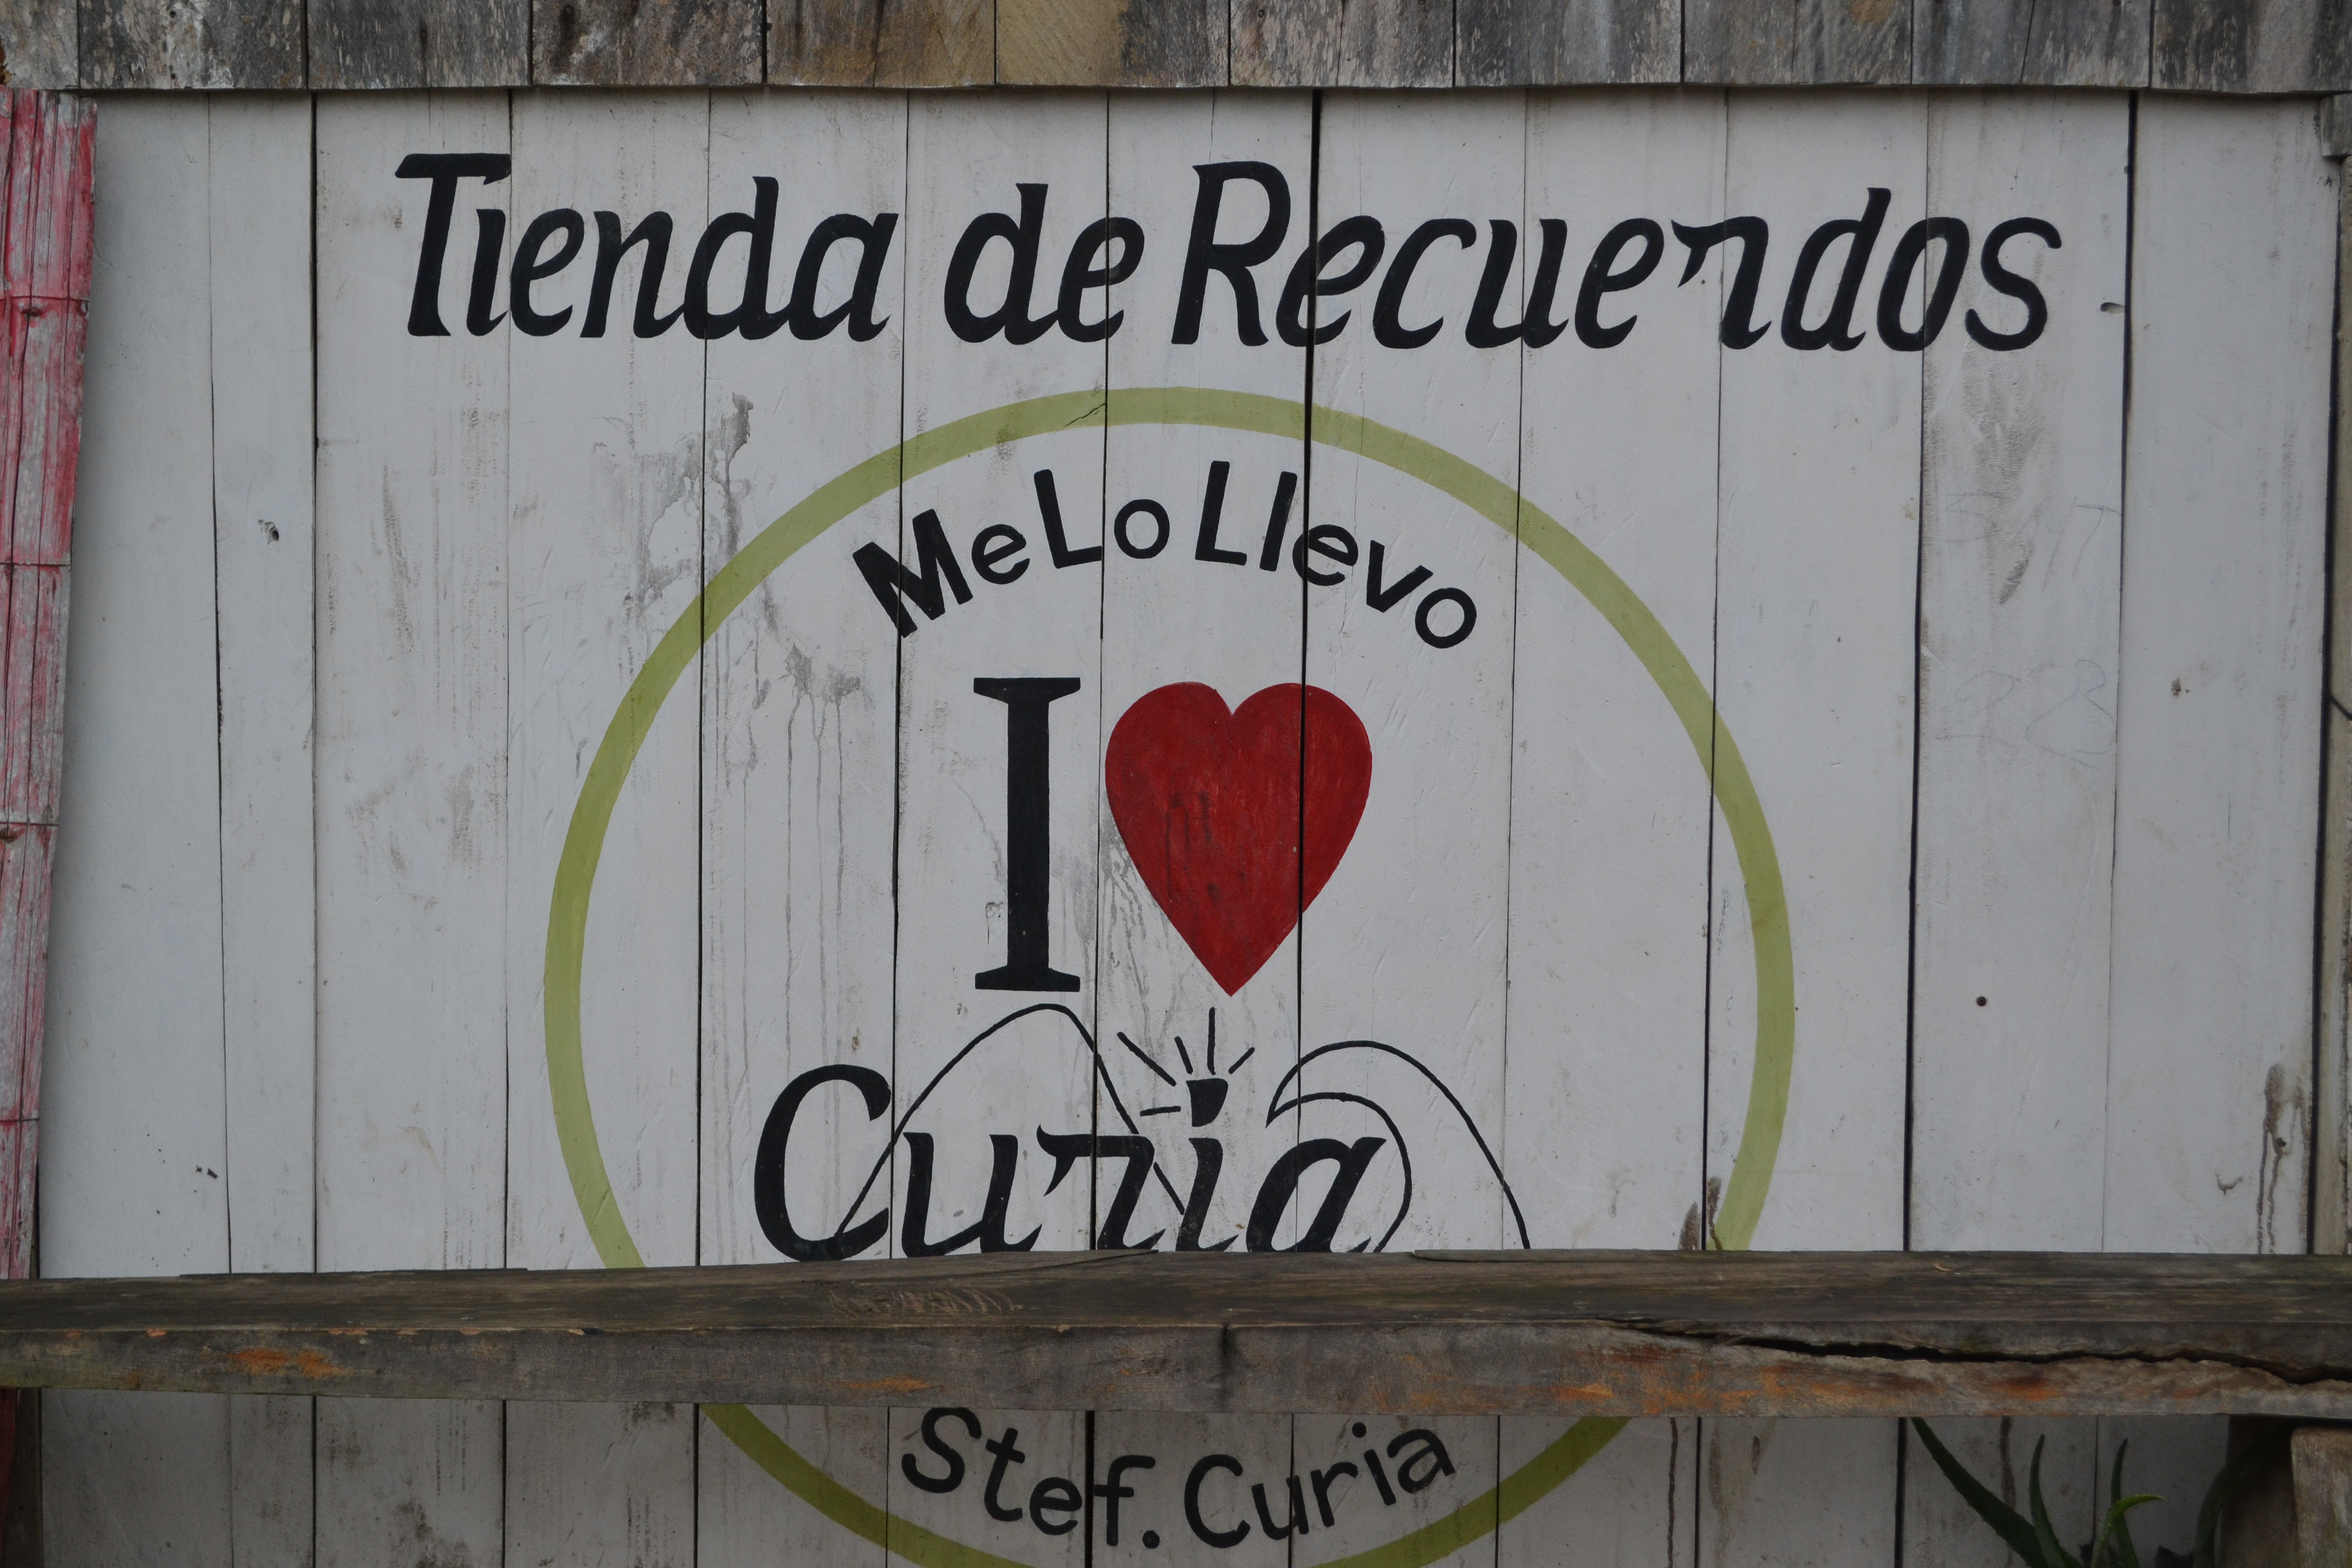 Tienda de Recuerdos
Me Lo Llevo
I ❤
Curia
Stef. Curia